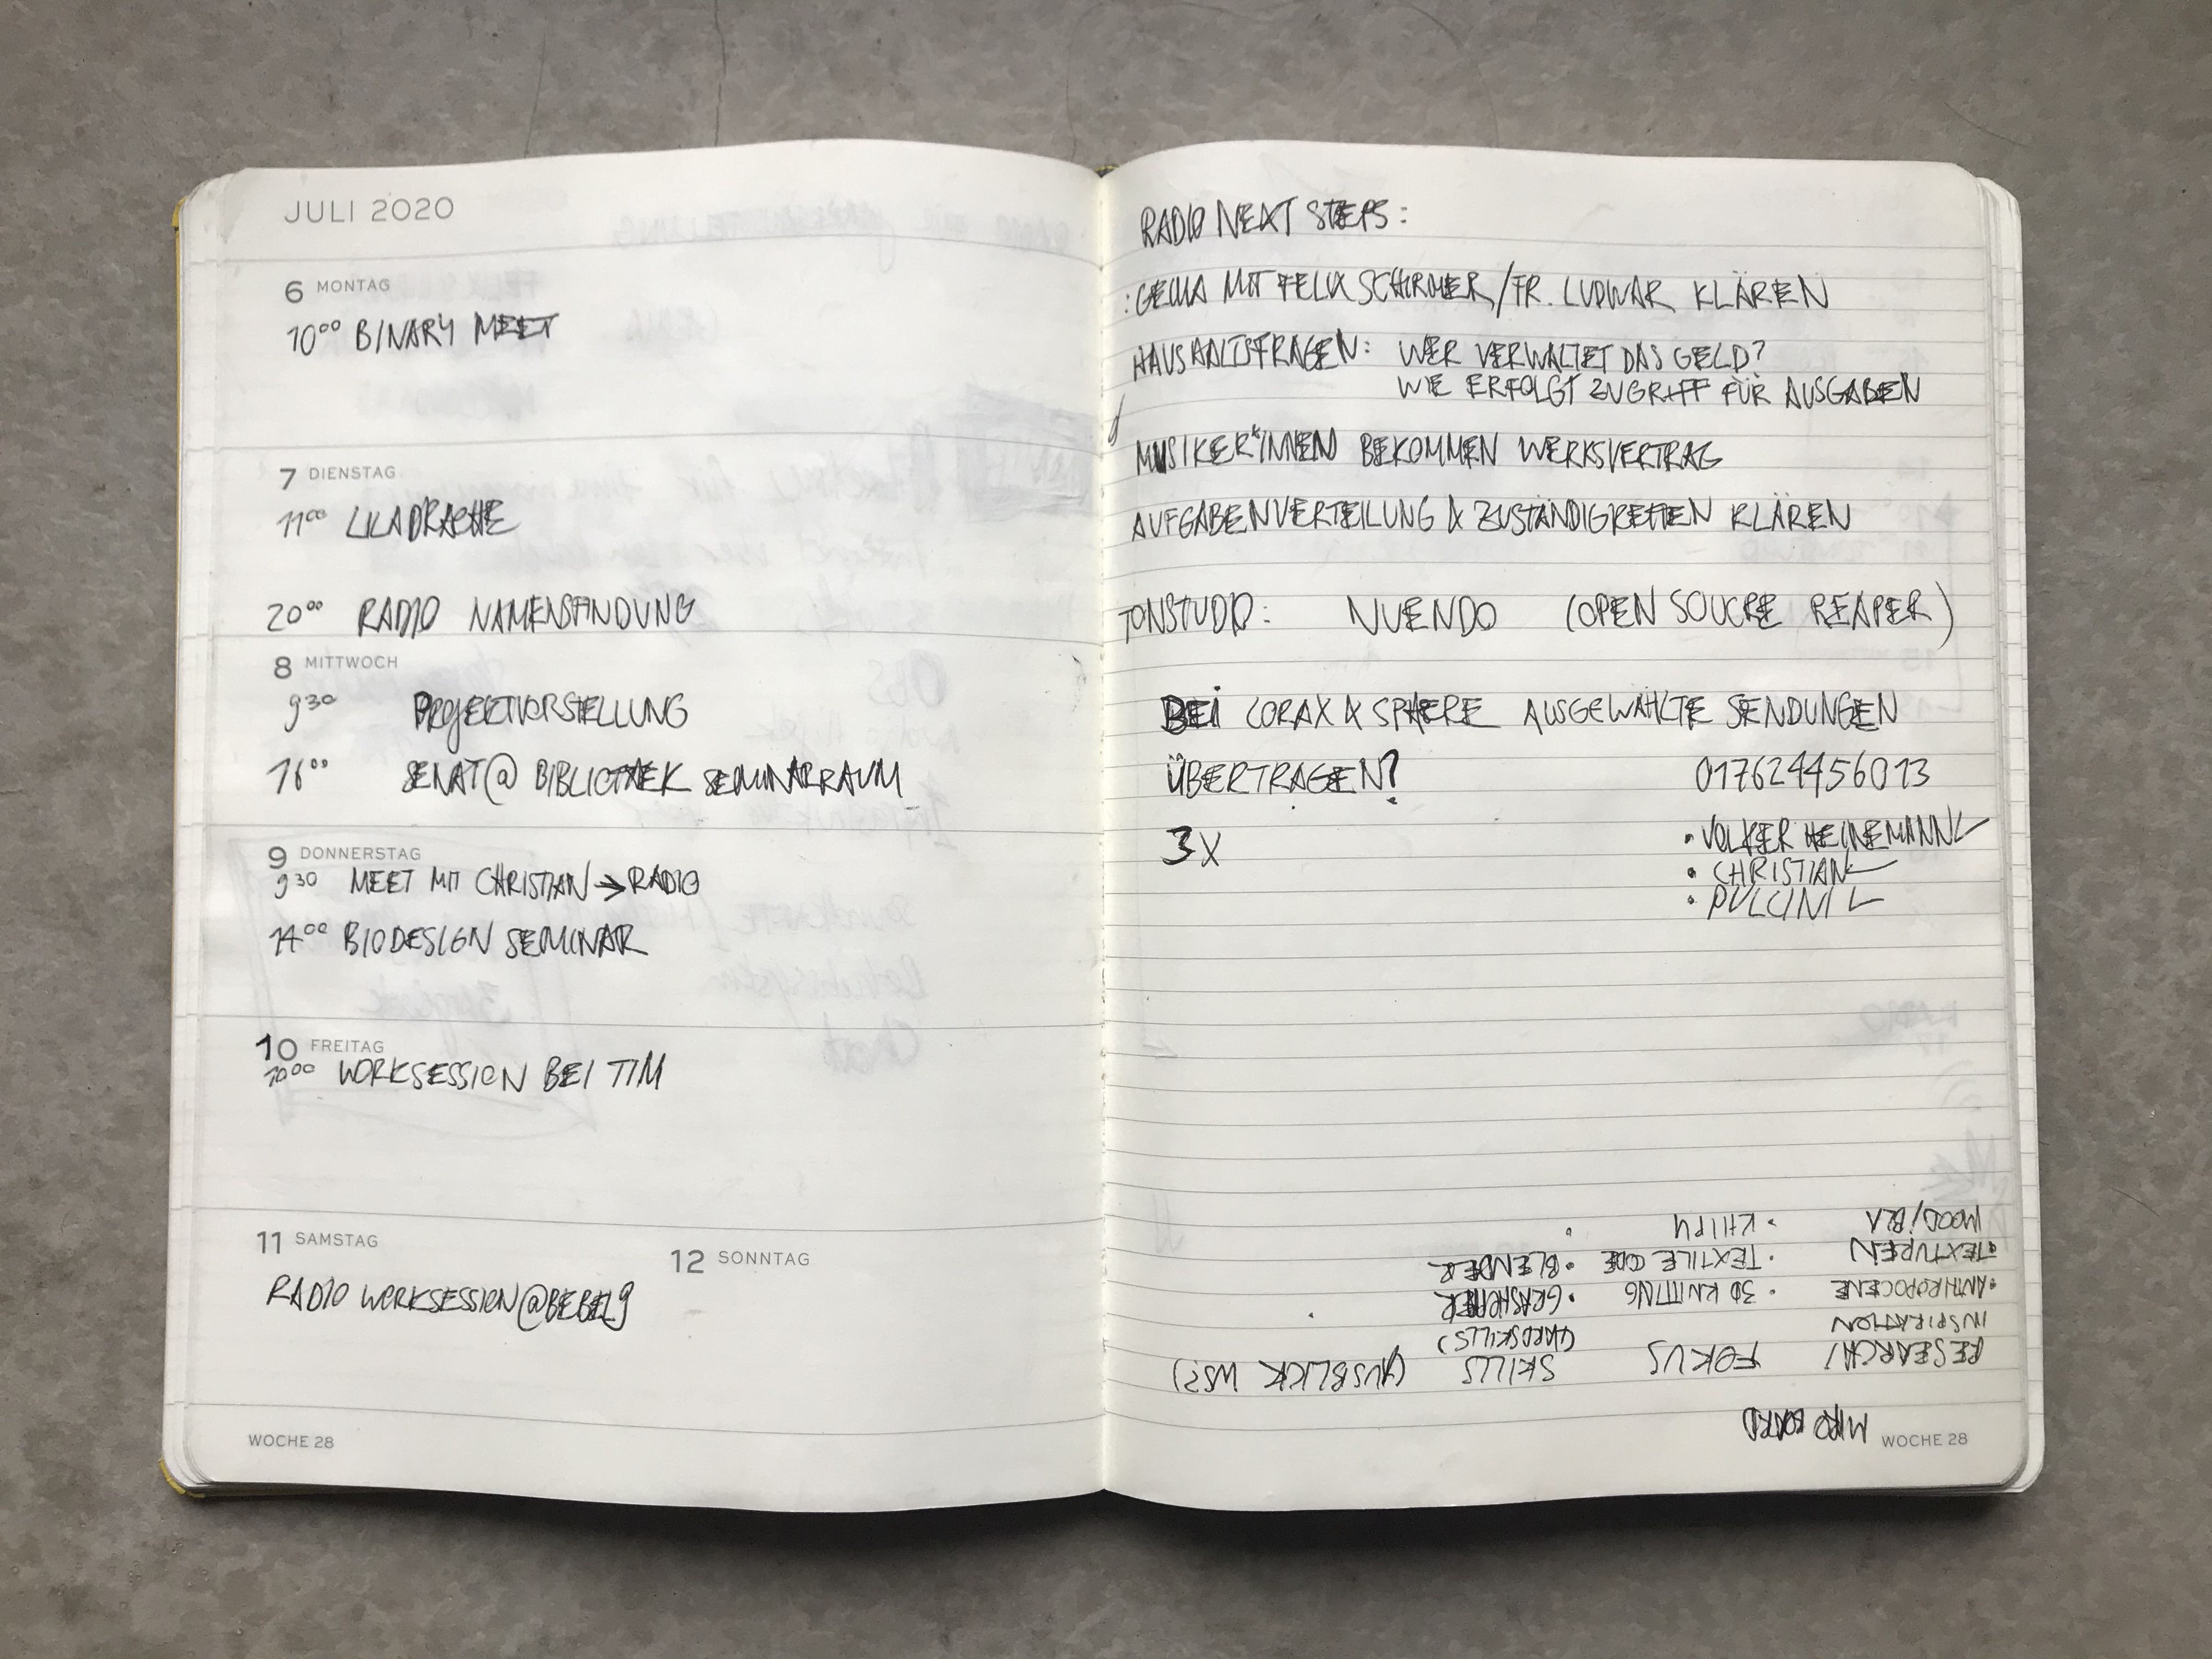 JULI 2020
6 MONTAG
10⁰⁰ BINARY MEET
7 DIENSTAG
11⁰⁰ LILA DRACHE
20⁰⁰ RADIO NAMENSFINDUNG
8 MITTWOCH
9³⁰ PROJEKTVORSTELLUNG
16⁰⁰ SENAT@ BIBLIOTHEK SEMINARRAUM
9 DONNERSTAG
9³⁰ MEET MIT CHRISTIAN → RADIO
14⁰⁰ BIODESIGN SEMINAR
10 FREITAG
10⁰⁰ WORKSESSION BEI TIM
11 SAMSTAG
12 SONNTAG
RADIO WORKSESSION@BEBEL9
WOCHE 28
RADIO NEXT STEPS:
: GEMA MIT FELIX SCHIRMER/FR. LUDWAR KLÄREN
HAUSHALTSFRAGEN: WER VERWALTET DAS GELD?
WIE ERFOLGT ZUGRIFF FÜR AUSGABEN
MUSIKER*INNEN BEKOMMEN WERKSVERTRAG
AUFGABENVERTEILUNG & ZUSTÄNDIGKEITEN KLÄREN
TONSTUDIO: NUENDO (OPEN SOUCRE REAPER)
BEI CORAX & SPHERE AUSGEWÄHLTE SENDUNGEN
ÜBERTRAGEN? 017624456013
3X • VOLKER HEINEMANN
• CHRISTIAN
• PULCINI
MIRO BOARD
RESEARCH/ FOKUS SKILLS (AUSBLICK WS?)
INSPIRATION (HARDSKILLS)
• ANTHROPOCENE • 3D KNITTING • GRASHOPPER
• TEXTUREN • TEXTILE CODE • BLENDER
MOOD/BLA • KHIPU •
WOCHE 28